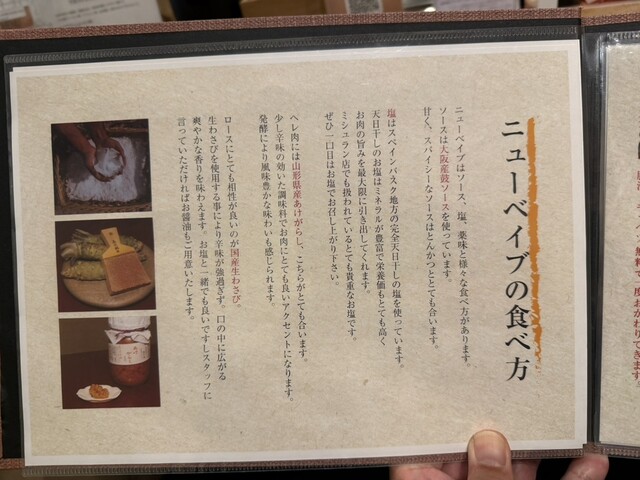 ニューベイブの食べ方
ニューベイブはソース、塩、薬味と様々な食べ方があります。
ソースは大阪産鼓ソースを使っています。
甘く、スパイシーなソースはとんかつととても合います。
塩はスペインバスク地方の完全天日干しの塩を使っています。
天日干しのお塩はミネラルが豊富で栄養価もとても高く
お肉の旨みを最大限に引き出してくれます。
ミシュラン店でも扱われているとても貴重なお塩です。
ぜひ一口目はお塩でお召し上がり下さい。
ヘレ肉には山形県産あけがらし、こちらがとても合います。
少し辛味の効いた調味料でお肉にとても良いアクセントになります。
発酵により風味豊かな味わいも感じられます。
ロースにとても相性が良いのが国産生わさび。
生わさびを使用する事により辛味が強過ぎず、口の中に広がる
爽やかな香りを味わえます。お塩と一緒でも良いですしスタッフに
言っていただければお醤油もご用意いたします。